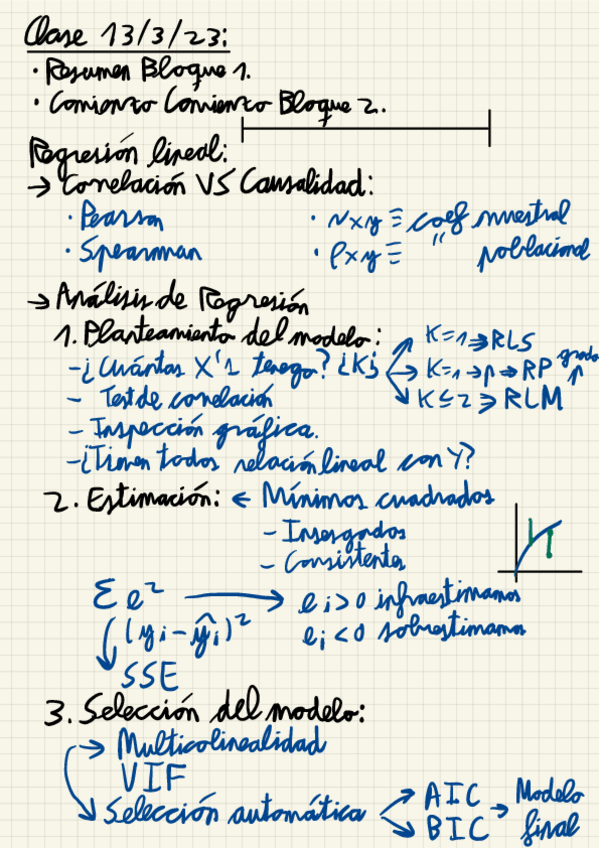 Clase 13/3/23:
· Resumen Bloque 1.
· Comienzo Comienzo Bloque 2.
Regresión lineal:
→ Correlación VS Causalidad:
· Pearson · rxy ≡ coef muestral
· Spearman · ρxy ≡ " poblacional
→ Análisis de Regresión
1. Planteamiento del modelo:
K=1 ⇒ RLS
-¿Cuántas X's tengo? ¿K? K=1 → p → RP grado
- Test de correlación K ≤ 2 ⇒ RLM
- Inspección gráfica.
-¿Tienen todos relación lineal con Y?
2. Estimación: ← Mínimos cuadrados
- Insesgados
- Consistentes
Σe² → ei > 0 infraestimamos
(yi - ŷi)² ei < 0 sobrestimamos
SSE
3. Selección del modelo:
→ Multicolinealidad
VIF
→ Selección automática AIC → Modelo
BIC final